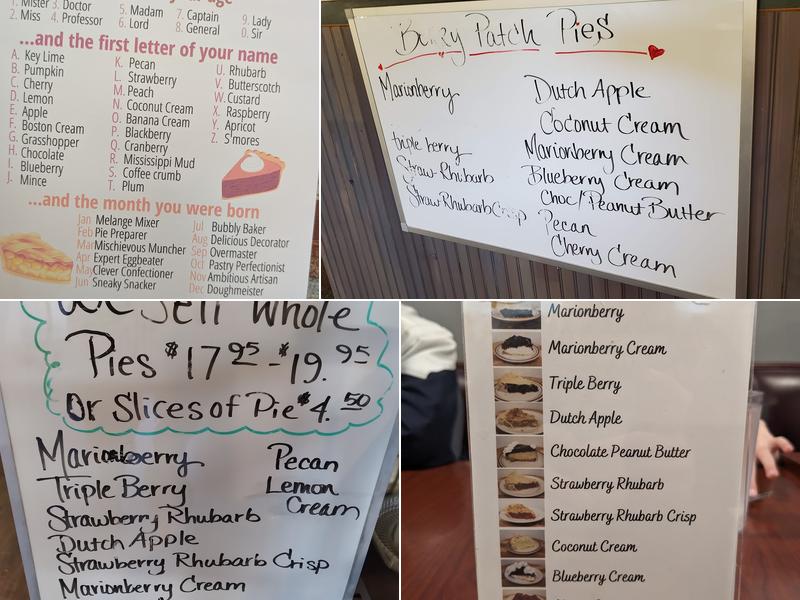 1. Mister 3. Doctor
2. Miss 4. Professor
5. Madam
6. Lord
7. Captain
8. General
9. Lady
0. Sir
...and the first letter of your name
A. Key Lime
B. Pumpkin
C. Cherry
D. Lemon
E. Apple
F. Boston Cream
G. Grasshopper
H. Chocolate
I. Blueberry
J. Mince
K. Pecan
L. Strawberry
M. Peach
N. Coconut Cream
O. Banana Cream
P. Blackberry
Q. Cranberry
R. Mississippi Mud
S. Coffee crumb
T. Plum
U. Rhubarb
V. Butterscotch
W. Custard
X. Raspberry
Y. Apricot
Z. S'mores
...and the month you were born
Jan Melange Mixer
Feb Pie Preparer
Mar Mischievous Muncher
Apr Expert Eggbeater
May Clever Confectioner
Jun Sneaky Snacker
Jul Bubbly Baker
Aug Delicious Decorator
Sep Overmaster
Oct Pastry Perfectionist
Nov Ambitious Artisan
Dec Doughmeister
Patch Pies
Marionberry
triple berry
Straw Rhubarb
Straw Rhubarb Crisp
Dutch Apple
Coconut Cream
Marionberry Cream
Blueberry Cream
Choc/Peanut Butter
Pecan
Cherry Cream
We Sell Whole
Pies $17.95-$19.95
Or Slices of Pie $4.50
Marionberry
Triple Berry
Strawberry Rhubarb
Dutch Apple
Strawberry Rhubarb Crisp
Marionberry Cream
Pecan
Lemon
Cream
Marionberry
Marionberry Cream
Triple Berry
Dutch Apple
Chocolate Peanut Butter
Strawberry Rhubarb
Strawberry Rhubarb Crisp
Coconut Cream
Blueberry Cream